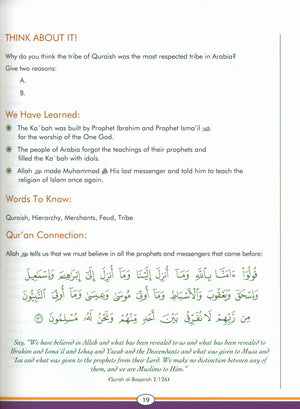 THINK ABOUT IT!
Why do you think the tribe of Quraish was the most respected tribe in Arabia?
Give two reasons:
A.
B.
We Have Learned:
The Ka`bah was built by Prophet Ibrahim and Prophet Isma'il
for the worship of the One God.
The people of Arabia forgot the teachings of their prophets and
filled the Ka`bah with idols.
Allah made Muhammad His last messenger and told him to teach the
religion of Islam once again.
Words To Know:
Quraish, Hierarchy, Merchants, Feud, Tribe
Qur'an Connection:
Allah tells us that we must believe in all the prophets and messengers that came before:
قُولُوٓا۟ ءَامَنَّا بِٱللَّهِ وَمَآ أُنزِلَ إِلَيْنَا وَمَآ أُنزِلَ إِلَىٰٓ إِبْرَٰهِـۧمَ وَإِسْمَٰعِيلَ
وَإِسْحَٰقَ وَيَعْقُوبَ وَٱلْأَسْبَاطِ وَمَآ أُوتِىَ مُوسَىٰ وَعِيسَىٰ وَمَآ أُوتِىَ ٱلنَّبِيُّونَ
مِن رَّبِّهِمْ لَا نُفَرِّقُ بَيْنَ أَحَدٍ مِّنْهُمْ وَنَحْنُ لَهُۥ مُسْلِمُونَ ﴿١٣٦﴾
Say, "We have believed in Allah and what has been revealed to us and what has been revealed to
Ibrahim and Isma'il and Ishaq and Yacub and the Descendants and what was given to Musa and
'Isa and what was given to the prophets from their Lord. We make no distinction between any
of them, and we are Muslims to Him."
(Surah al-Baqarah 2:136)
19